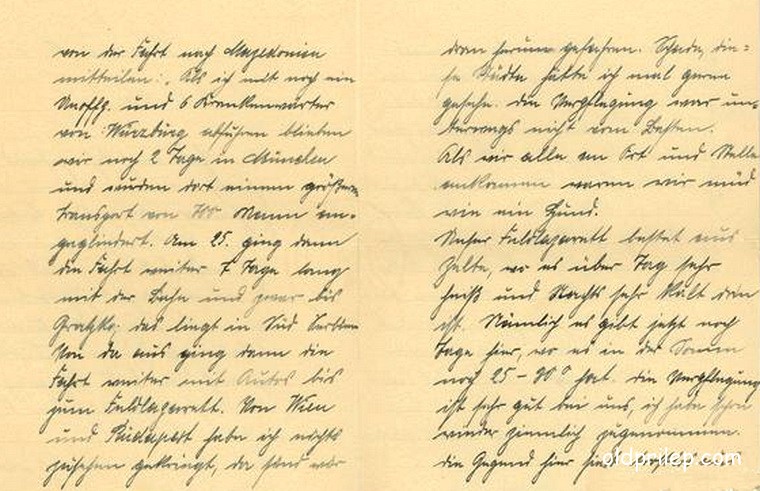 von der Fahrt nach Mazedonien
mitteilen: Als ich mit noch ein
Uoffz. und 6 Krankenwärter
von Würzburg abfuhren blieben
wir noch 2 Tage in München
und wurden dort einem größeren
Transport von 700 Mann ein-
gegliedert. Am 25. ging dann
die Fahrt weiter 7 Tage lang
mit der Bahn und zwar bis
Gratzko, das liegt in Süd Serbien
Von da aus ging dann die
Fahrt weiter mit Autos bis
zum Feldlazarett. Von Wien
und Budapest habe ich nichts
zusehen gekriegt, da sind wir
dran herum gefahren. Schade, die=
se Städte hätte ich mal gerne
gesehn. Die Verpflegung war un-
terwegs nicht vom Besten.
Als wir alle an Ort und Stelle
ankommen waren wir müd
wie ein Hund.
Unser Feldlazarett besteht aus
Zelte, wo es über Tag sehr
heiß und Nachts sehr kalt drin
ist. Nämlich es gibt jetzt noch
Tage hier, wo es in der Sonne
noch 25-30° hat. Die Verpflegung
ist sehr gut bei uns, ich habe schon
wieder ziemlich zugenommen.
Die Gegend hier
oldprilep.com